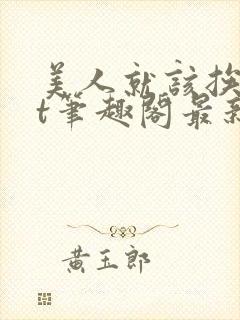 美人就該挨
t筆趣閣最新
黃玉郎